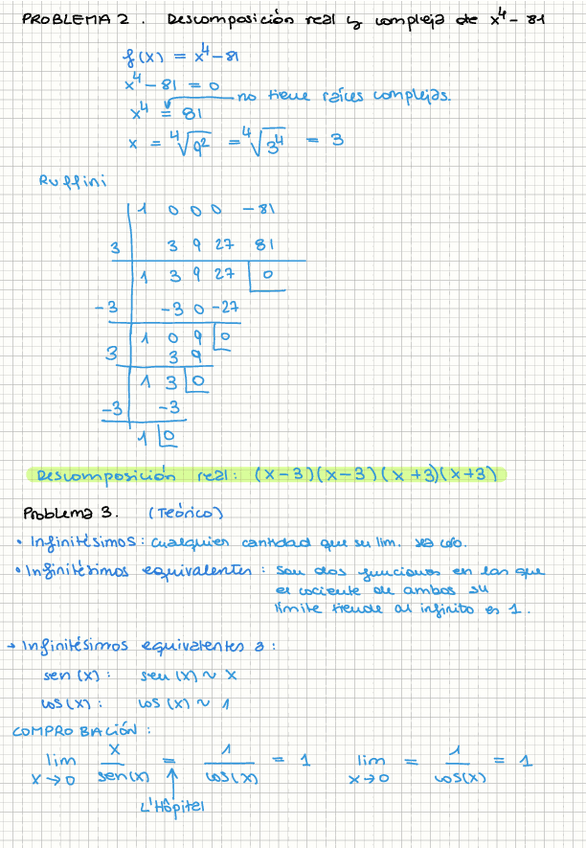 PROBLEMA 2. Descomposición real y compleja de x⁴ - 81
f(x) = x⁴ - 81
x⁴ - 81 = 0
no tiene raíces complejas.
x⁴ = 81
x = ⁴√9² = ⁴√3⁴ = 3
Ruffini
1 0 0 0 -81
3 3 9 27 81
1 3 9 27 0
-3 -3 0 -27
1 0 9 0
3 3 9
1 3 0
-3 -3
1 0
Descomposición real: (x-3)(x-3)(x+3)(x+3)
Problema 3. (Teórico)
• Infinitésimos: Cualquier cantidad que su lim. sea cero.
• Infinitésimos equivalentes: Son dos funciones en las que
el cociente de ambos su
límite tiende al infinito es 1.
→ Infinitésimos equivalentes a:
sen(x): sen(x) ~ x
cos(x): cos(x) ~ 1
COMPROBACIÓN:
lim x→0 x/sen(x) = 1/cos(x) = 1 lim x→0 = 1/cos(x) = 1
L'Hôpitel